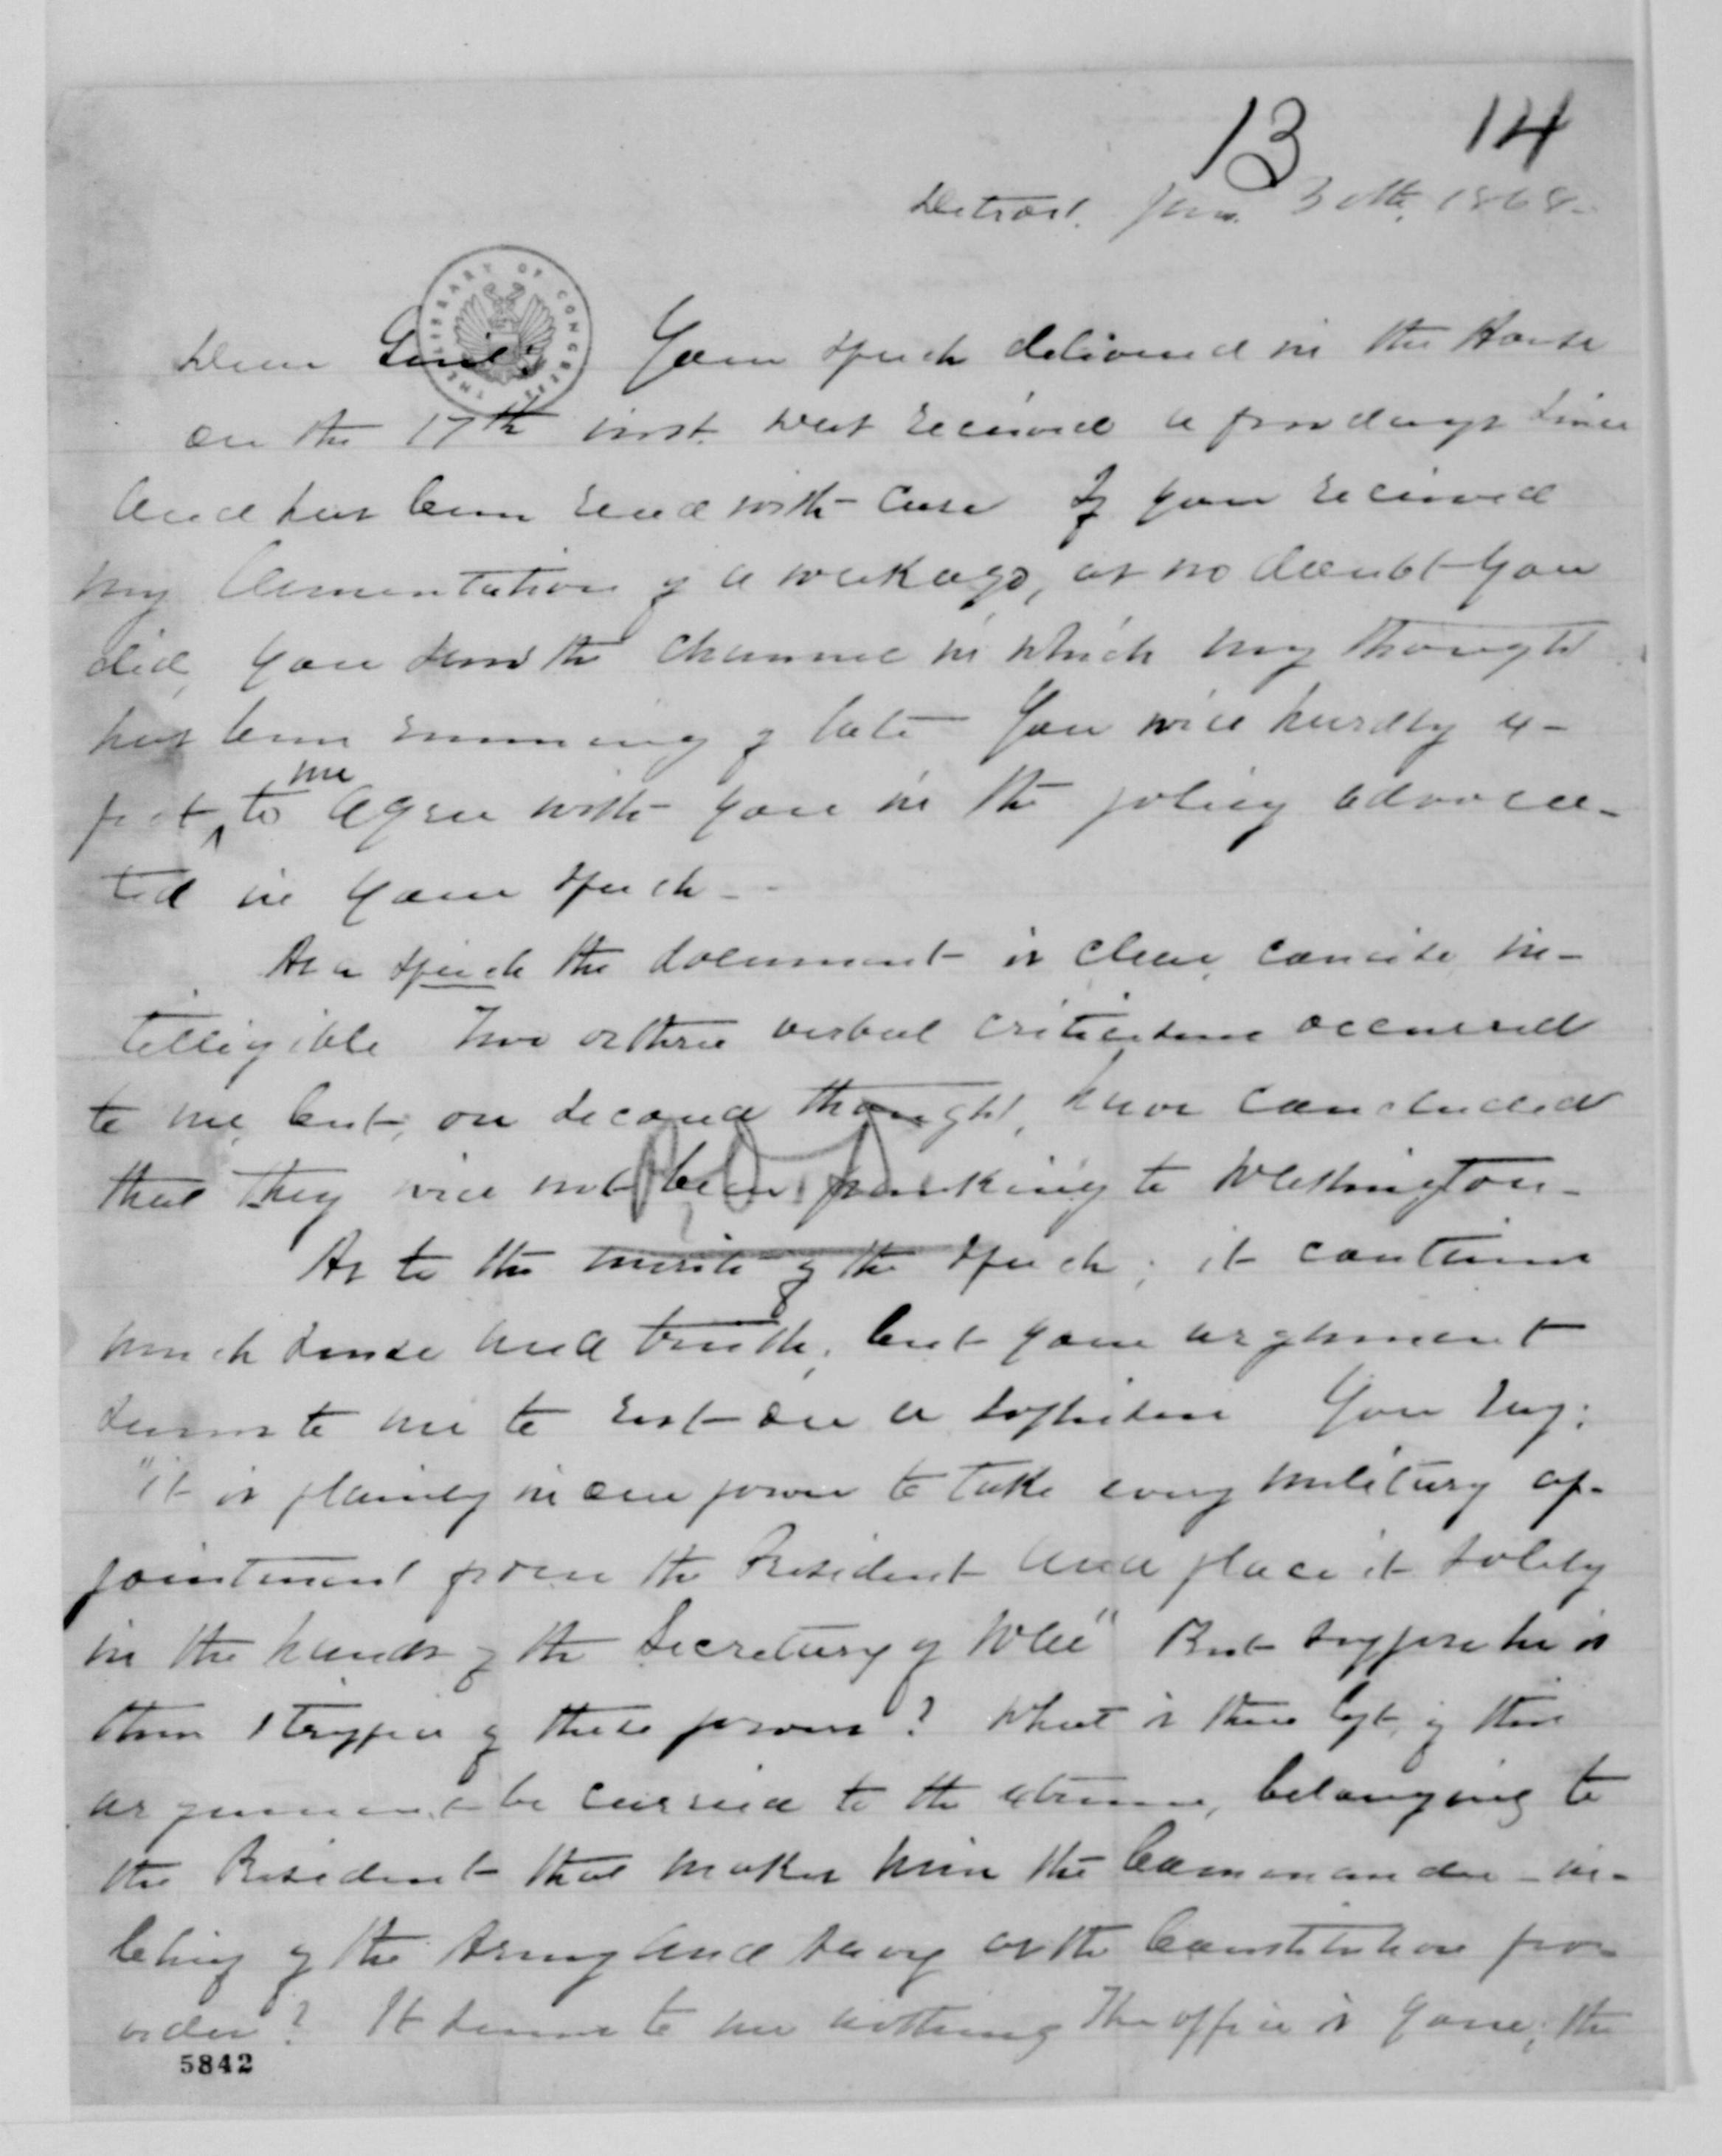 13 14
Detroit. Jan. 30th, 1868.
THE LIBRARY OF CONGRESS
Dear Genl: Your speech delivered in the House
on the 17th inst. was received a few days since
and has been read with care If you received
my lamentation of a week ago, as no doubt you
did, you know the channel in which my thought
has been running of late – You will hardly ex-
me
pect to agree with you in the policy advoca-
ted in your speech –
As a speech the document is clear, concise, in-
telligible Two or three verbal criticisms occurred
to me, but, on second thought, have concluded
that they will not bear packing to Washington –
As to the merits of the speech; it contains
much sense and truth, but your argument
seems to me to rest on a sophism You say:
"it is plainly in our power to take every military ap-
pointment from the President and place it solely
in the hands of the Secretary of War" But suppose he is
thus stripped of these powers? What is there left, if this
argument be carried to the extreme, belonging to
the President that makes him the Commander-in-
Chief of the Army and Navy as the Constitution pro-
vides? It seems to me nothing The office is gone; the
5842